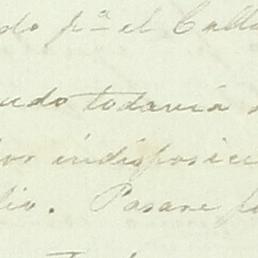 do pª el Calla
udo todavia
or indisposici
lio. Pasare p